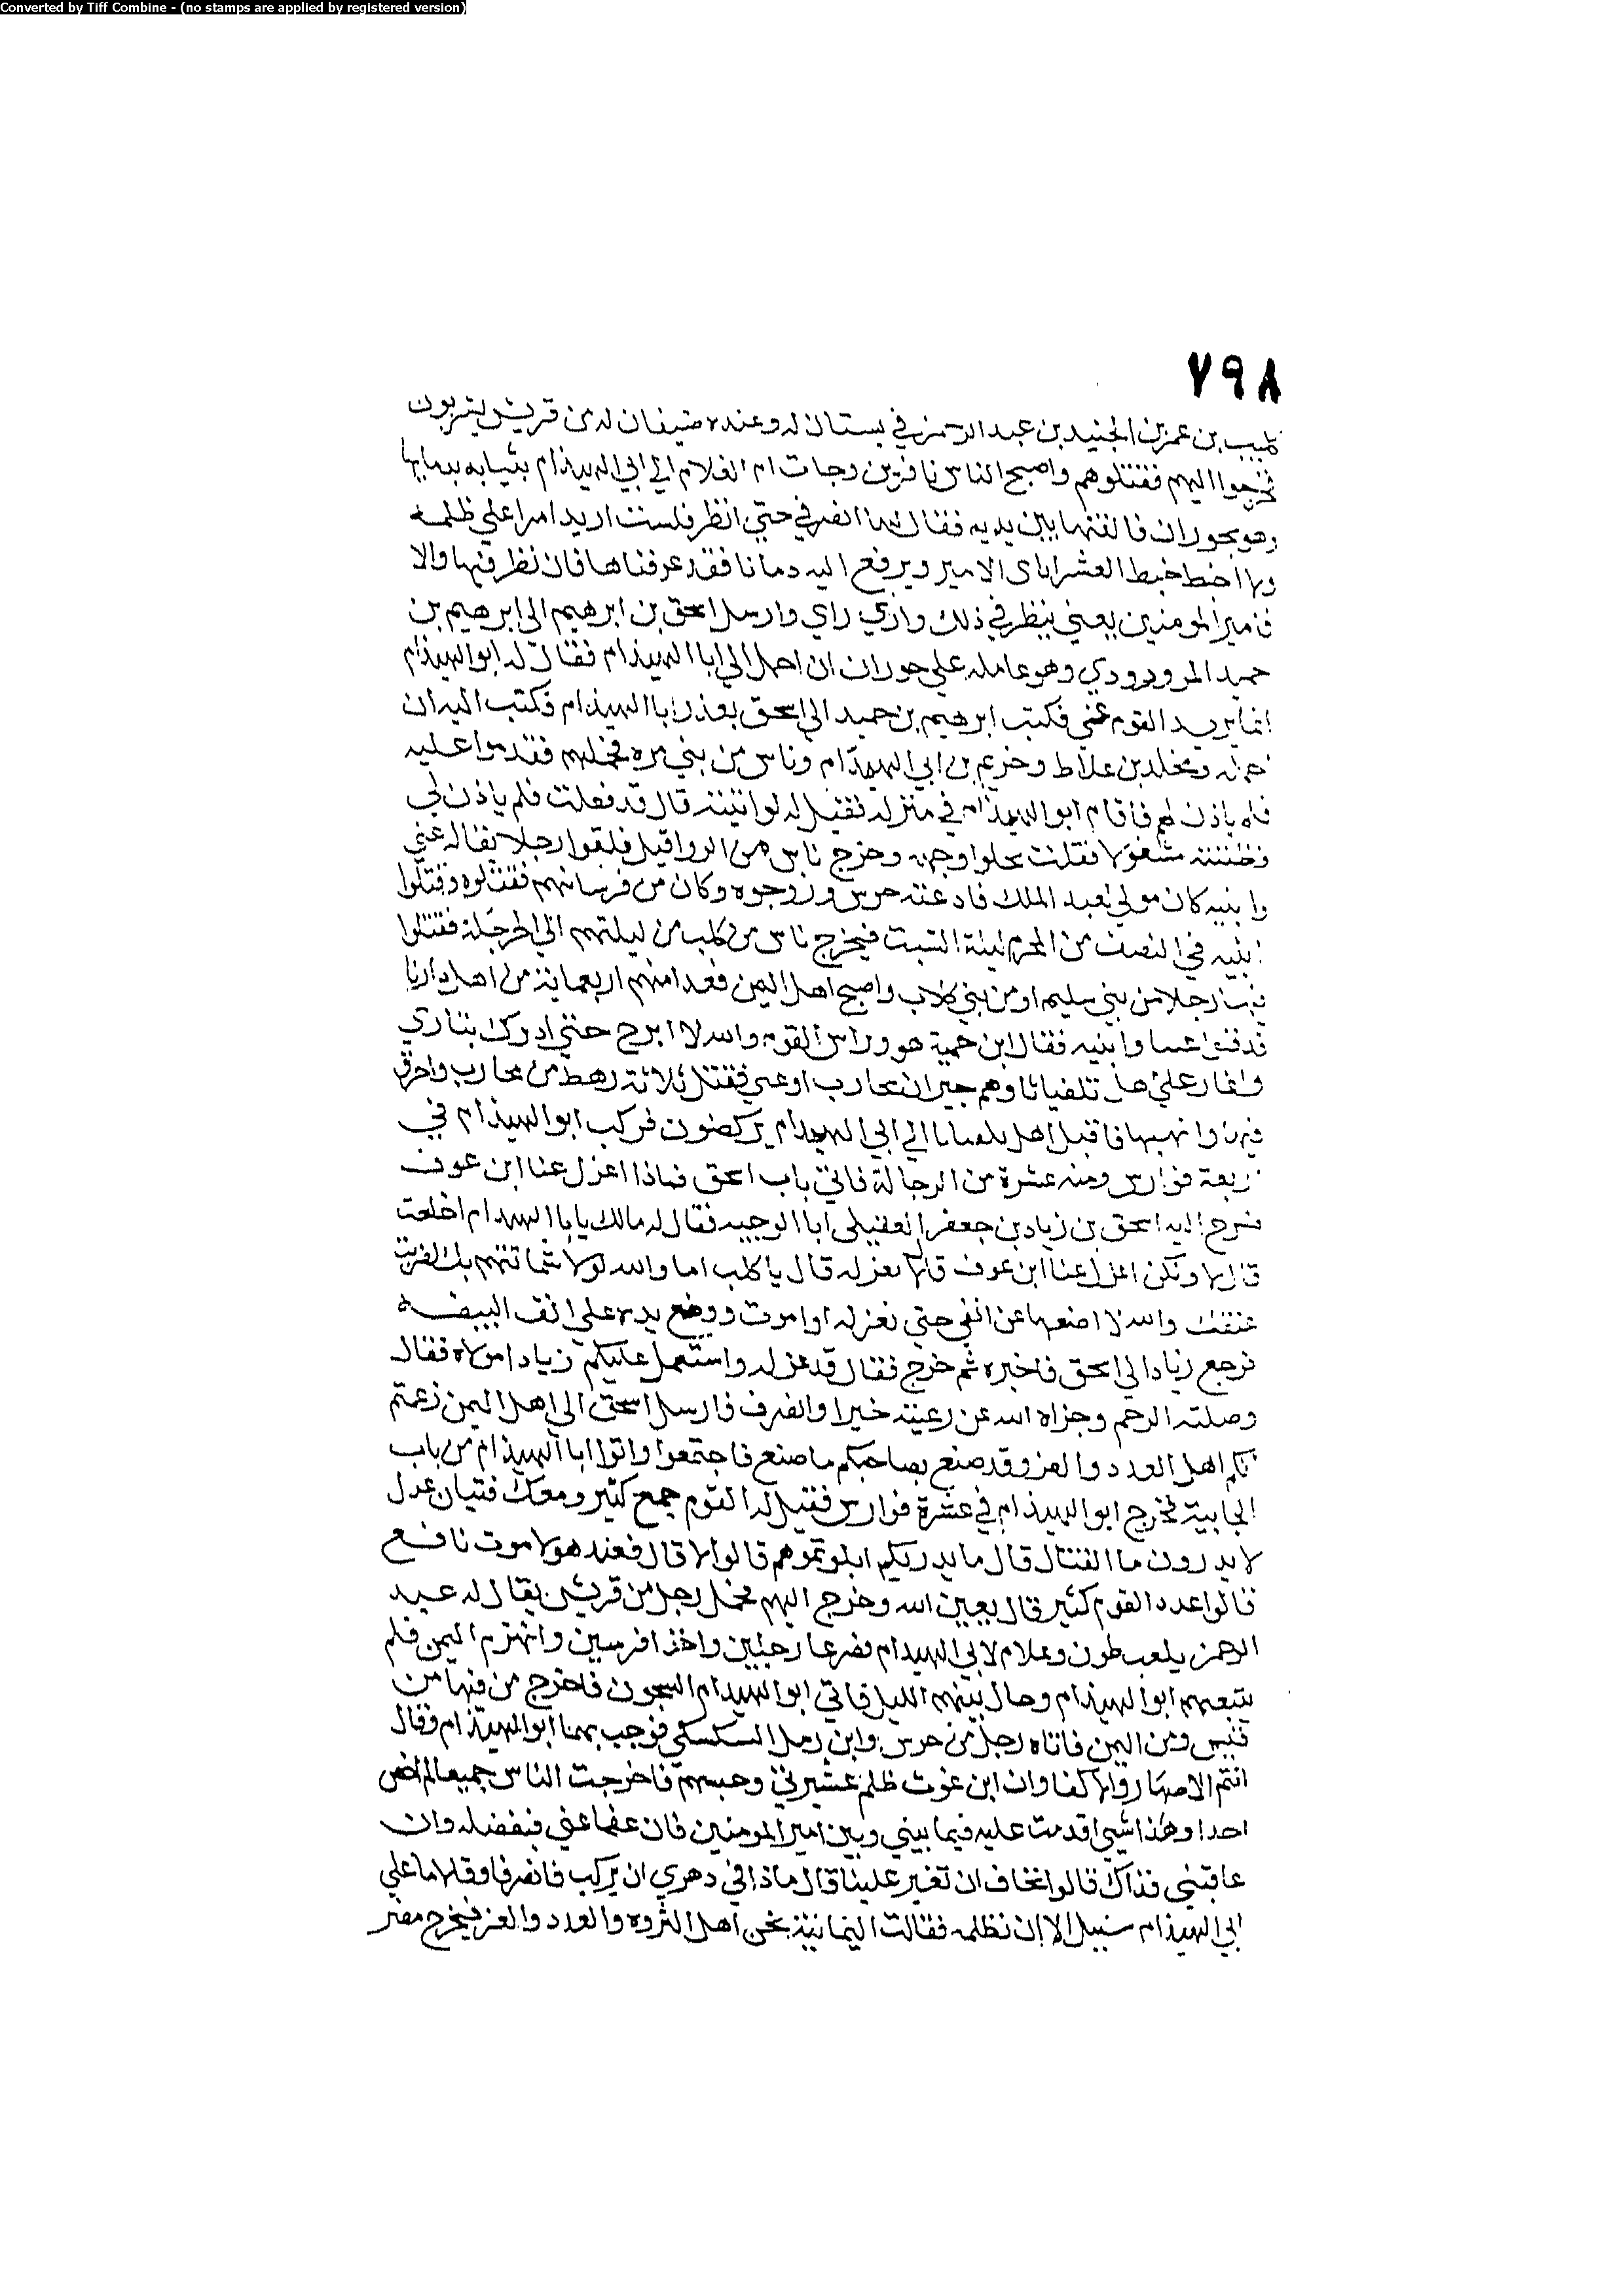 Converted by Tiff Combine - (no stamps are applied by registered version)
٧٩٨
بن عمر بن الجنيد بن عبد الرحمن في بستان له وعنده ضيفان له من قريش يشربون
فخرجوا اليهم فقتلوهم واصبح الناس نافرين وجات ام الغلام الي ابي الهيذام بثيابه بدمايها
وهو بحوران فالقتها بين يديه فقال لها انصرفي حتي انظر فلست اريد امرا علي ظلمه
ولا اخبط خبط العشرا ياى الامير ويرفع اليه دمانا فقد عرفناها فان نظر فيها والا
فامير المومنين يعني ينظر في ذلك وازي راي وارسل اسحق بن ابرهيم الى ابرهيم بن
حميد المروروذي وهو عامله علي حوران ان احمل الي ابا الهيذام فقال له ابو الهيذام
انما يريد القوم عني فكتب ابرهيم بن حميد الي اسحق بعذر ابا الهيذام فكتب اليه ان
ومخلد بن علاط وخريم بن ابي الهيذام وناس من بني مره فحملهم فقدموا عليه
فلم ياذن لهم فاقام ابو الهيذام في منزله فقيل له لو اتيته قال قد فعلت فلم ياذن لي
وظننته مشغولا فقلت يحلوا وجهه وخرج ناس من الزواقيل فلقوا رجلا يقال له عني
وابنيه كان مولي لعبد الملك فادعته حرس وزوجوه وكان من فرسانهم فقتلوه وقتلوا
ابنيه في النصف من المحرم ليلة السبت فيخرج ناس من كلب من ليلتهم الي الحرجلة فقتلوا
رجلا من بني سليم او من بني كلاب واصبح اهل اليمن فغدا منهم اربعماية من اهل داريا
فدفنوا وابنيه فقال ابن حمية هو وراس القوم والله لا ابرح حتي ادرك بثاري
واغار علي اهل تلفياثا وهم جيران محارب او عني فقتل ثلاثة رهط من محارب واحرق
وانهبها فاقبل اهل الي ابي الهيذام يركضون فركب ابو الهيذام في
اربعة فوارس ومعه عشرة من الرجالة فاتي باب اسحق فنادا اعزل عنا ابن عوف
فخرج اليه اسحق بن زياد بن جعفر العقيلي ابا الوجيه فقال له مالك يابا الهيذام اخلعت
قال لا ولكن اعزل عنا ابن عوف قال لا نعزله قال ياكلب اما والله لولا شماتتهم بك لضربت
عنقك والله لا اضعها عن انفي حتي نعزله او اموت ووضع يده علي انف البيضه
فرجع زياد الي اسحق فاخبره ثم خرج فقال قد عزله واستعمل عليكم زيادا مولاه فقال
وصلته الرحم وجزاه الله عن رعيته خيرا وانصرف فارسل اسحق الي اهل اليمن زعمتم
انكم اهل العدد والعز وقد صنع بصاحبكم ما صنع فاجتمعوا واتوا ابا الهيذام من باب
الجابية فخرج ابو الهيذام في عشرة فوارس فقيل له القوم جمع كثير ومعك فتيان عزل
لا يدرون ما القتال قال ما يدريكم ابلوتموهم قالوا لا قال فعند هولا موت نافع
قالوا عدد القوم كثير قال يعين الله وخرج اليهم فحمل رجل من قريش يقال له عبد
الرحمن يلعب طون وغلام لابي الهيذام فصرعا رجلين واخذا فرسين وانهزم اليمن فلم
يتبعهم ابو الهيذام وحال بينهم الليل فاتي ابو الهيذام السجون فاخرج من فيها من
قيس ومن اليمن فاتاه رجل من حرس وابن رمل السكسكي فرحب بهما ابو الهيذام وقال
انتم الاصهار والاكفا وان ابن عوف ظلم عشيرتي وحبسهم فاخرجت الناس جميعا لم اخص
احدا وهذا شيي اقدمت عليه فيما بيني وبين امير المومنين فان عفا عني فبفضله وان
عاقبني فذاك قالوا نخاف ان تغير علينا قال ماذا في دهري ان يركب فانصرفا وقالا ما علي
ابي الهيذام سبيل الا ان نظلمه فقالت اليمانية نحن اهل الثروه والعدد والعز فيخرج مضر